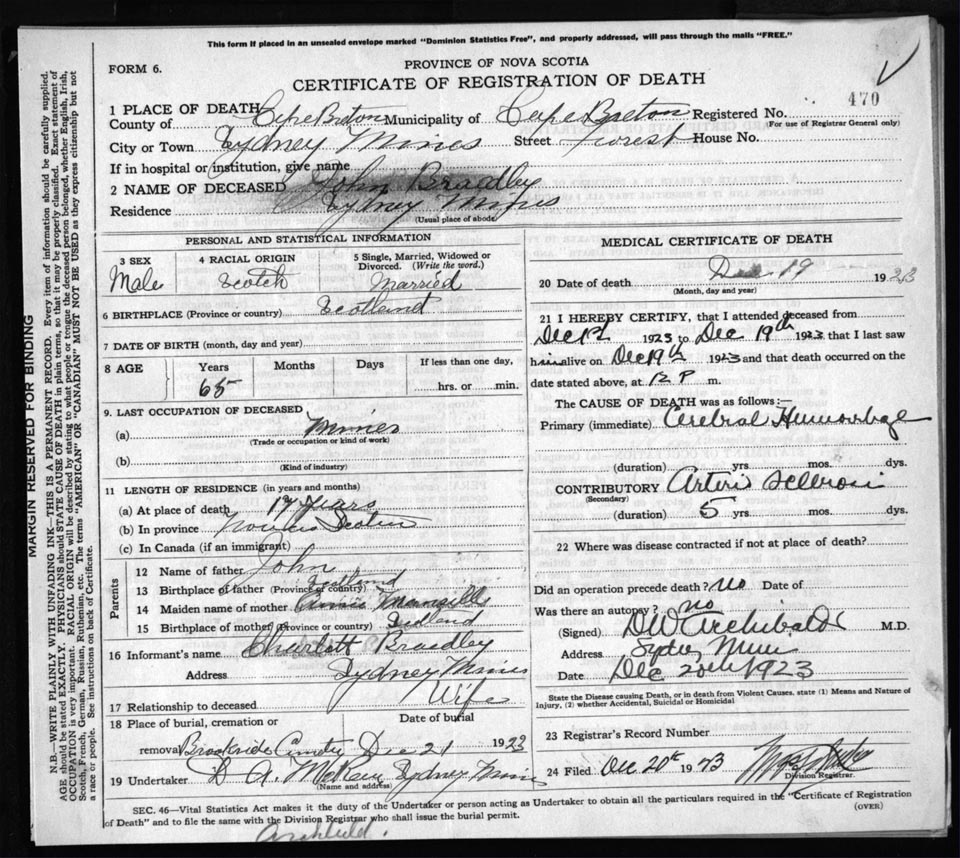 This form if placed in an unsealed envelope marked "Dominion Statistics Free", and properly addressed, will pass through the mails "FREE."
FORM 6.
PROVINCE OF NOVA SCOTIA
CERTIFICATE OF REGISTRATION OF DEATH
470
1 PLACE OF DEATH
County of Cape Breton Municipality of Cape Breton Registered No.
(For use of Registrar General only)
City or Town Sydney Mines Street Forest House No.
If in hospital or institution, give name
2 NAME OF DECEASED John Bradley
Residence Sydney Mines
(Usual place of abode)
PERSONAL AND STATISTICAL INFORMATION
3 SEX
Male
4 RACIAL ORIGIN
Scotch
5 Single, Married, Widowed or Divorced. (Write the word.)
Married
6 BIRTHPLACE (Province or country) Scotland
7 DATE OF BIRTH (month, day and year)
8 AGE Years Months Days If less than one day,
65 hrs. or min.
9. LAST OCCUPATION OF DECEASED
(a) Miner
(Trade or occupation or kind of work)
(b)
(Kind of industry)
11 LENGTH OF RESIDENCE (in years and months)
(a) At place of death 19 years
(b) In province Nova Scotia
(c) In Canada (if an immigrant)
Parents
12 Name of father John
13 Birthplace of father (Province or country) Scotland
14 Maiden name of mother Annie
15 Birthplace of mother (Province or country) Scotland
16 Informant's name Charlott Bradley
Address Sydney Mines
17 Relationship to deceased Wife
18 Place of burial, cremation or Date of burial
removal Brookside Cemetry Dec 21 1923
19 Undertaker A. McRae Sydney Mines
(Name and address)
MEDICAL CERTIFICATE OF DEATH
20 Date of death Dec 19 1923
(Month, day and year)
21 I HEREBY CERTIFY, that I attended deceased from
Dec 1923 to Dec 19th 1923 that I last saw
him alive on Dec 19th 1923 and that death occurred on
date stated above, at 12 P m.
The CAUSE OF DEATH was as follows:—
Primary (immediate) Cerebral Humorrhage
(duration) yrs. mos. dys.
CONTRIBUTORY Arterio
(Secondary)
(duration) 5 yrs. mos. dys.
22 Where was disease contracted if not at place of death?
Did an operation precede death? no Date of
Was there an autopsy? no
(Signed) DW Archibald M.D.
Address Sydney Mines
Date Dec 20th 1923
State the Disease causing Death, or in death from Violent Causes, state (1) Means and Nature of Injury, (2) whether Accidental, Suicidal or Homicidal
23 Registrar's Record Number
24 Filed Dec 20th 1923
Division Registrar
SEC. 46—Vital Statistics Act makes it the duty of the Undertaker or person acting as Undertaker to obtain all the particulars required in the "Certificate of Registration
of Death" and to file the same with the Division Registrar who shall issue the burial permit.
(OVER)
Archibald.
MARGIN RESERVED FOR BINDING
N.B.—WRITE PLAINLY WITH UNFADING INK—THIS IS A PERMANENT RECORD. Every item of information should be carefully supplied.
AGE should be stated EXACTLY. PHYSICIANS should STATE CAUSE OF DEATH in plain terms, so that it may be properly classified. Exact statement of
OCCUPATION is very important. RACIAL ORIGIN will be described by stating to what people or tongue the deceased person belonged, whether English, Irish,
Scotch, French, German, Russian, Ruthenian, etc. The terms "AMERICAN" OR "CANADIAN" MUST NOT BE USED as they express citizenship but not
a race or people. See instructions on back of Certificate.